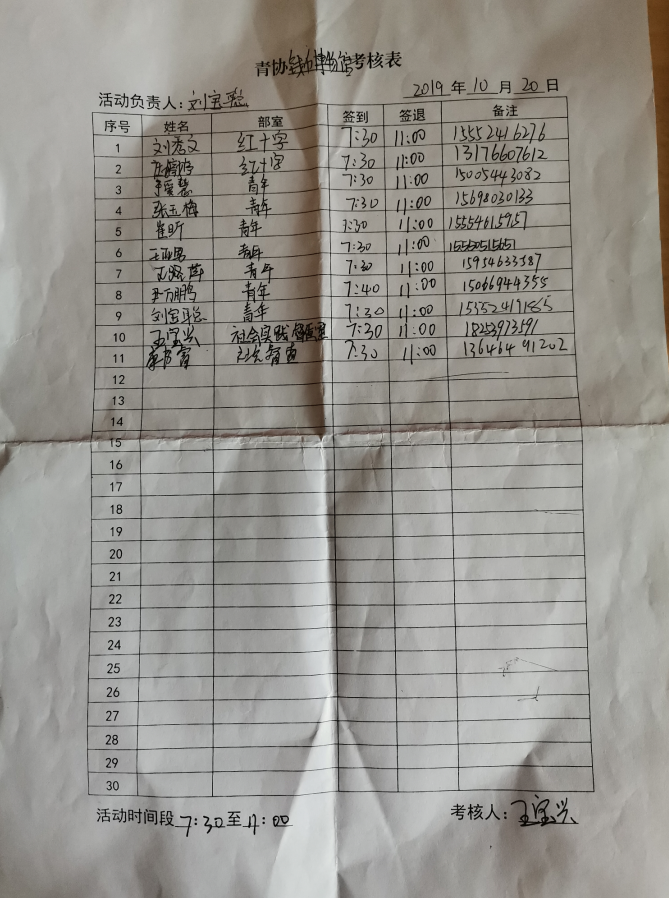 青协钱币博物馆考核表
2019 年 10 月 20 日
活动负责人：刘宝聪
序号 姓名 部室 签到 签退 备注
1 刘秀文 红十字 7:30 11:00 15552416276
2 红十字 7:30 11:00 13176607612
3 青年 7:30 11:00 15005443082
4 张玉梅 青年 7:30 11:00 15698030133
5 崔昕 青年 7:30 11:00 15554615957
6 青年 7:30 11:00
7 青年 7:30 11:00 15954633587
8 尹万鹏 青年 7:40 11:00 15066944355
9 刘宝聪 青年 7:30 11:00
10 王宝兴 社会实践 7:30 11:00 18253973591
11 7:30 11:00 13646491202
12
13
14
15
16
17
18
19
20
21
22
23
24
25
26
27
28
29
30
活动时间段 7:30至11:00 考核人：王宝兴